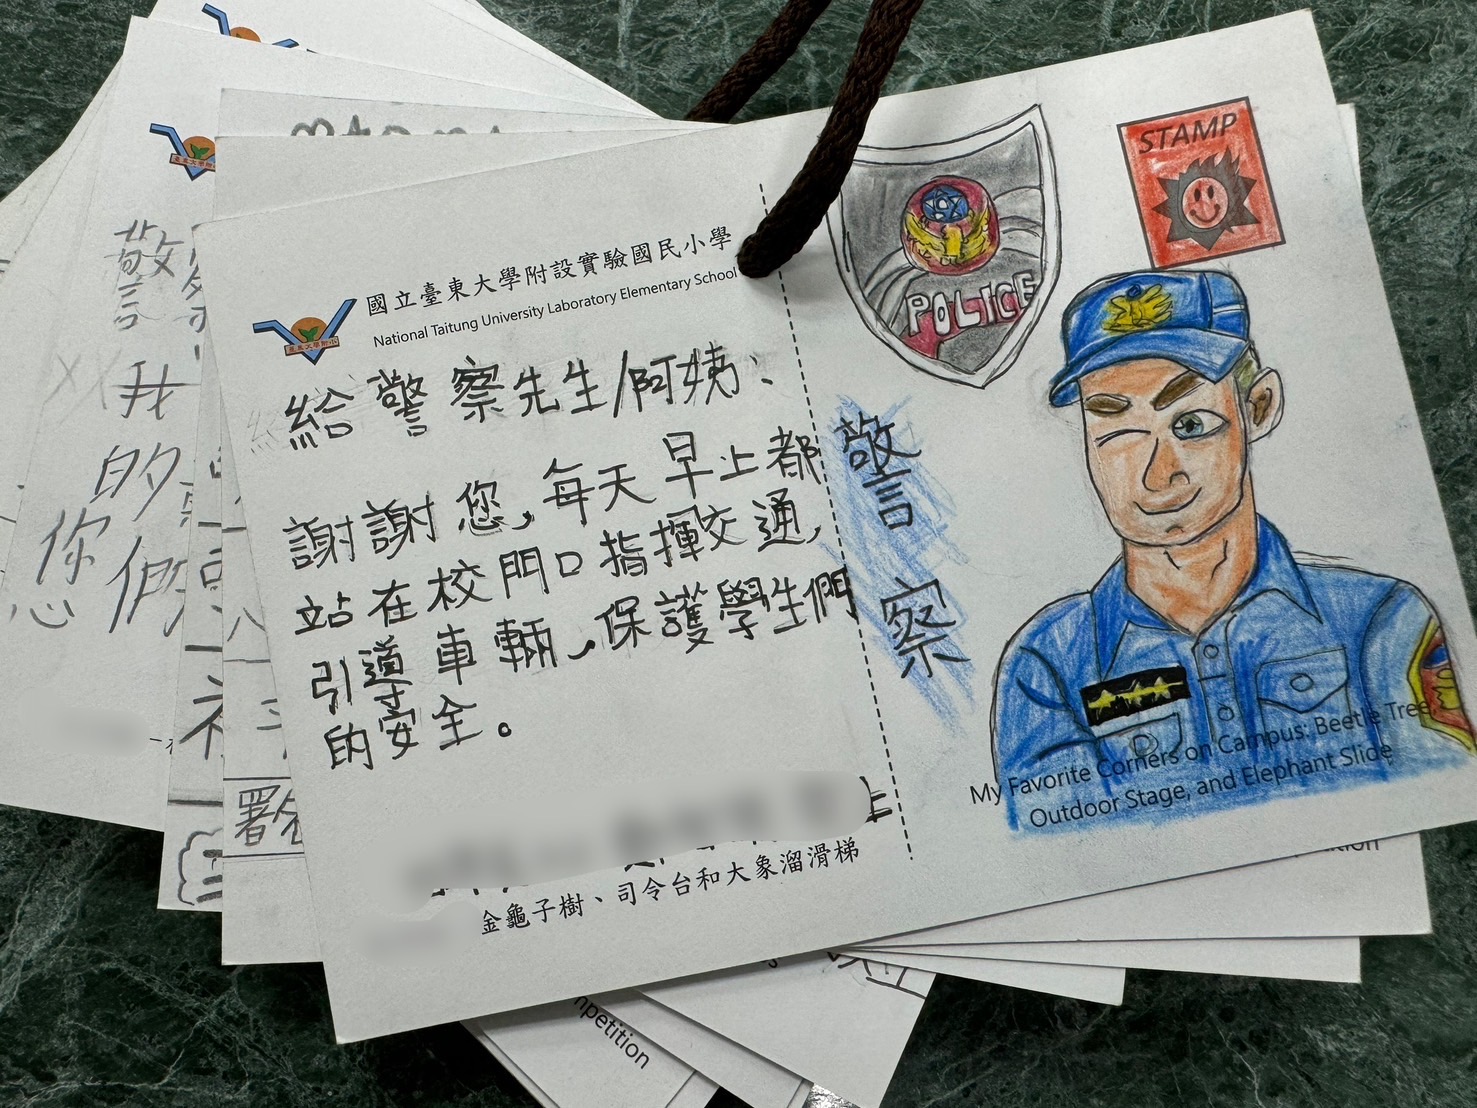 國立臺東大學附設實驗國民小學
National Taitung University Laboratory Elementary School
臺東大學附小
給警察先生/阿姨、
謝謝您,每天早上都
站在校門口指揮交通,
引導車輛,保護學生們
的安全。
金龜子樹、司令台和大象溜滑梯
POLICE
STAMP
警察
My Favorite Corners on Campus: Beetle Tree,
Outdoor Stage, and Elephant Slide
警
我
的
您們
署名
mpetition